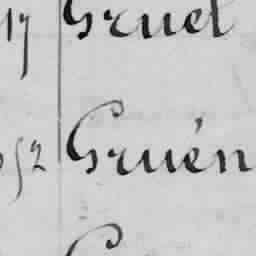 17 Gruel
52 Gruén